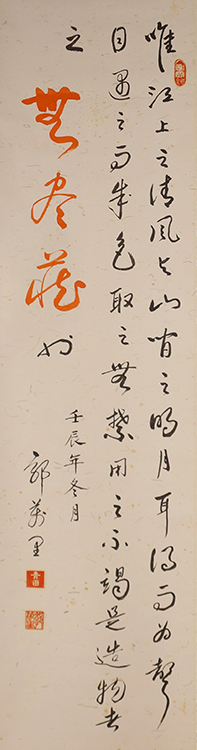 唯江上之清風与山間之明月耳得而為聲
目遇之而成色取之無禁用之不竭是造物者
之
無尽藏
也
壬辰年冬月
郭萬里